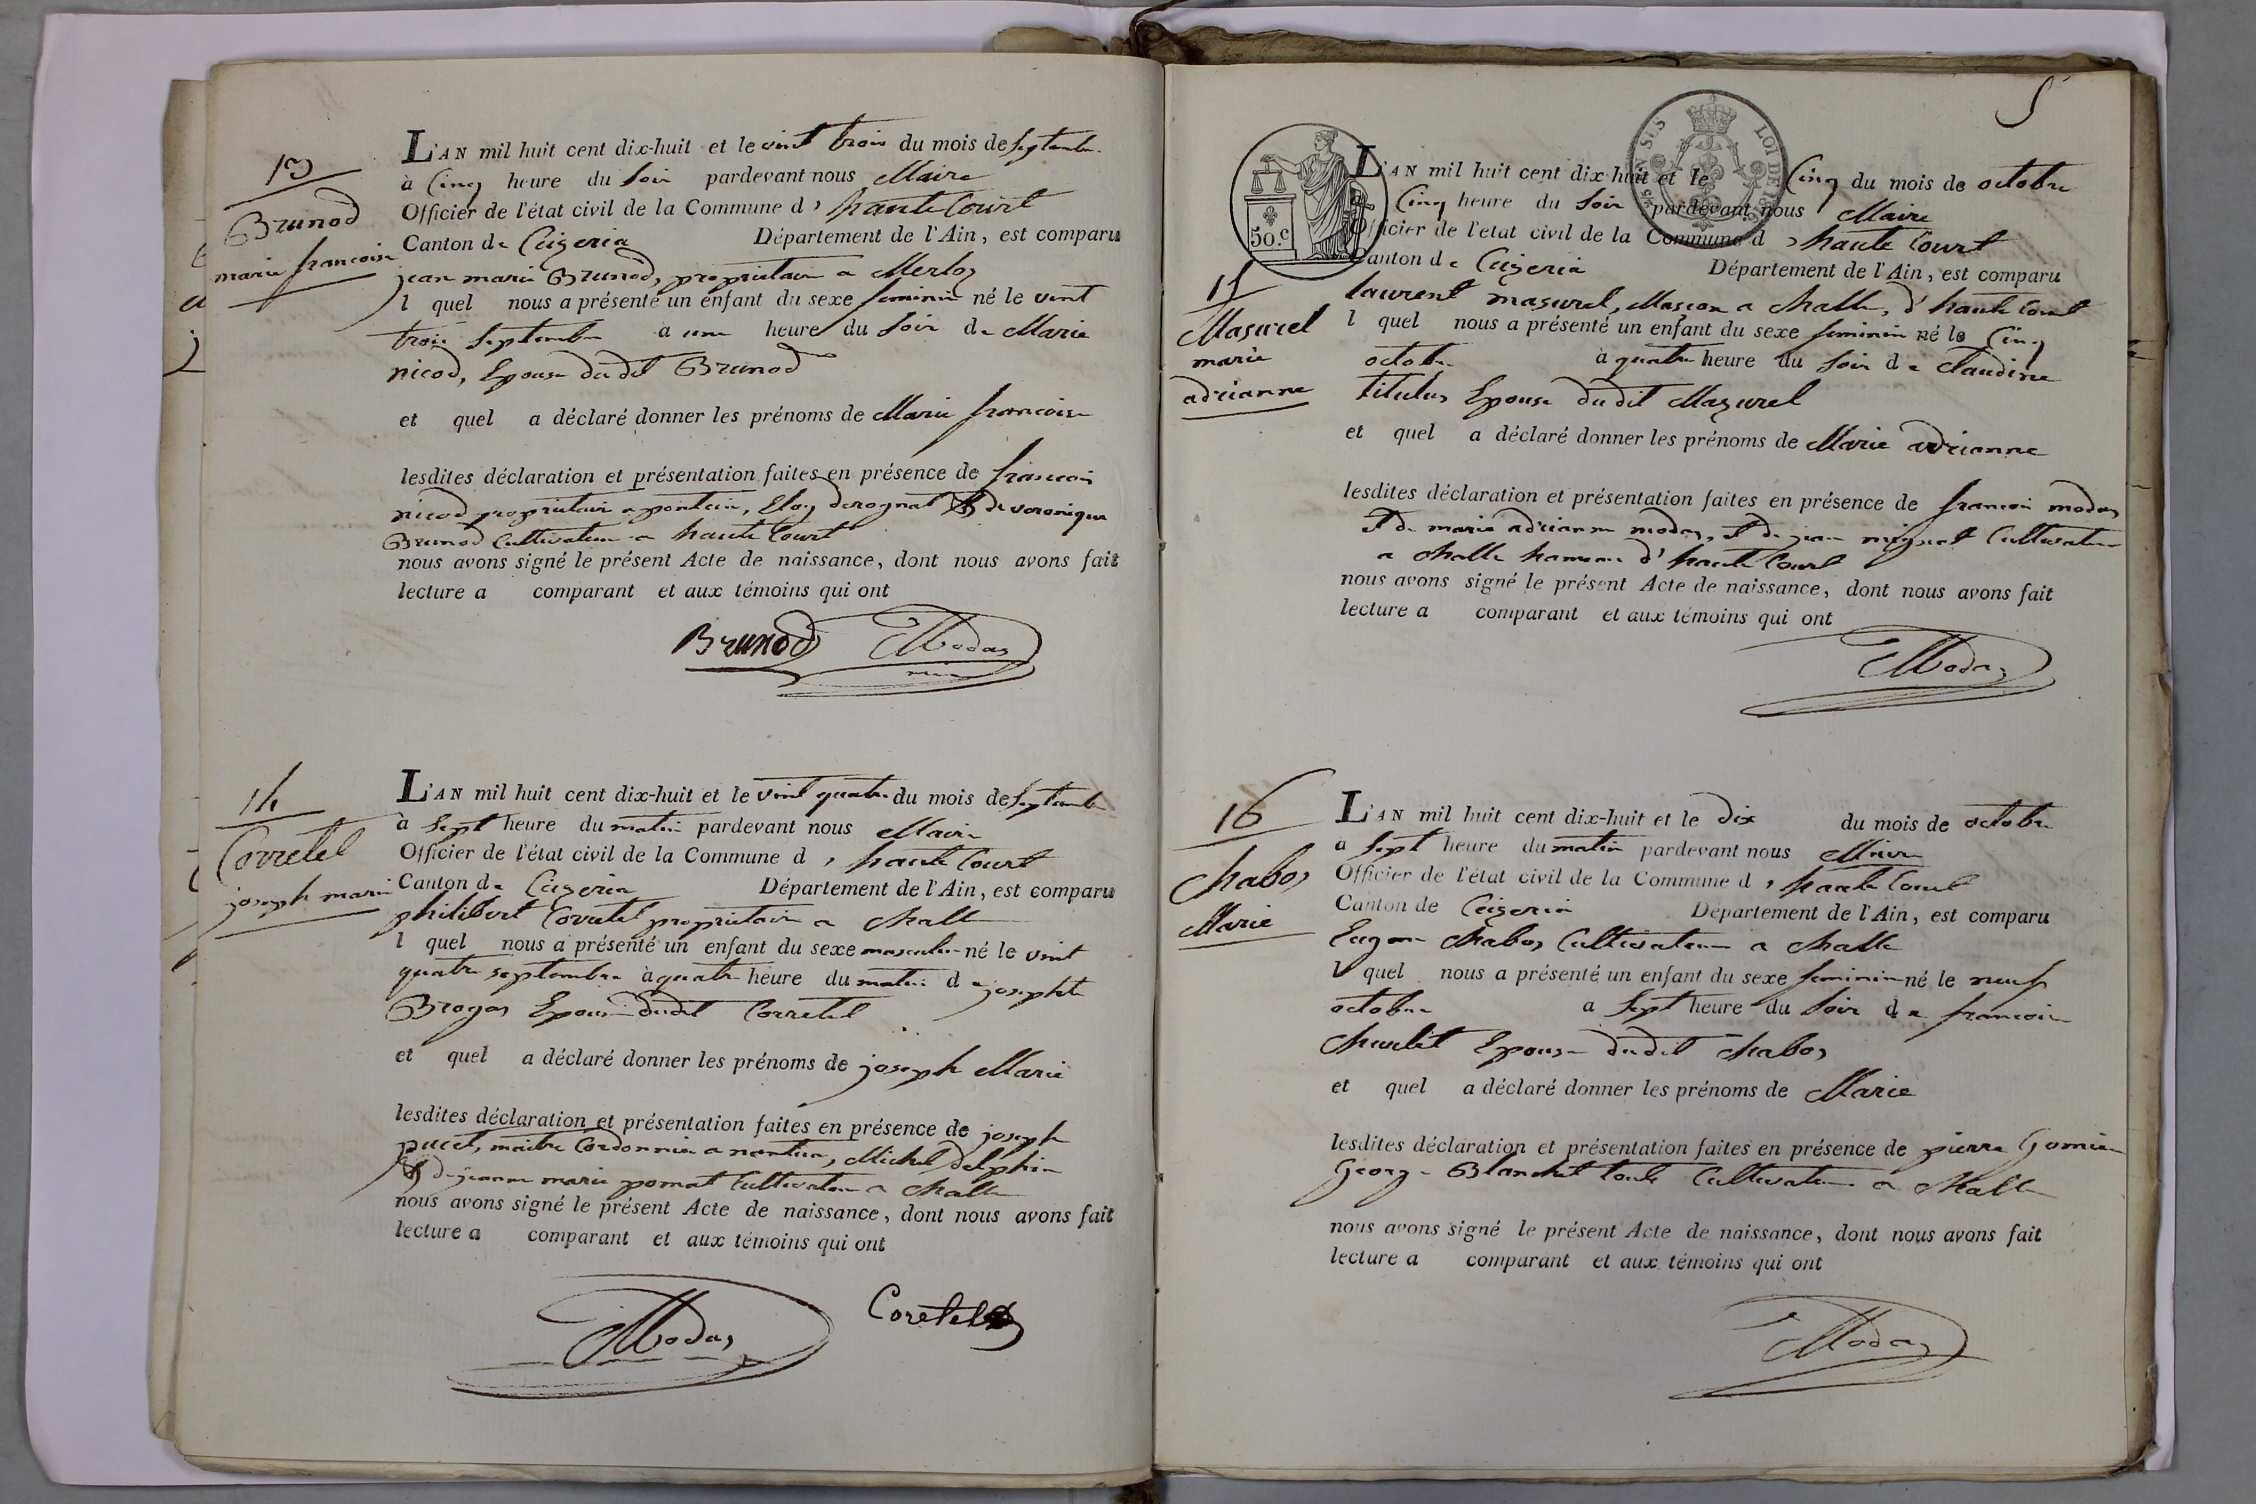 13
Brunod
marie francoise
L'AN mil huit cent dix-huit et le vint trois du mois de septembre
à Cinq heure du soir pardevant nous Maire
Officier de l'état civil de la Commune d, haute Court
Canton de Ceizeria Département de l'Ain, est comparu
jean marie Brunod, propriétaire a Merloz
l quel nous a présenté un enfant du sexe feminin né le vint
trois septembre a une heure du soir de Marie
nicod, Epouse dudit Brunod
et quel a déclaré donner les prénoms de Marie francoise
lesdites déclaration et présentation faites en présence de francois
nicod propriétaire a poncin, Eloy derognat et de veronique
Brunod Cultivateur a haute Court
nous avons signé le présent Acte de naissance, dont nous avons fait
lecture a comparant et aux témoins qui ont
Brunod Modas
14
Corretel
joseph marie
L'AN mil huit cent dix-huit et le vint quatre du mois de septembre
à sept heure du matin pardevant nous Maire
Officier de l'état civil de la Commune d, haute Court
Canton de Ceizeria Département de l'Ain, est comparu
philibert Corretel propriétaire a Challe
l quel nous a présenté un enfant du sexe masculin né le vint
quatre septembre à quatre heure du matin de josephte
Brogas Epouse dudit Corretel
et quel a déclaré donner les prénoms de joseph Marie
lesdites déclaration et présentation faites en présence de joseph
pucet, maitre Cordonnier a nantua, Michel delphin
et de jeanne marie pomat Cultivateur a Challe
nous avons signé le présent Acte de naissance, dont nous avons fait
lecture a comparant et aux témoins qui ont
Modas Coretel
5
50.c
LOI DE 1816
15
Masurel
marie
adrianne
L'AN mil huit cent dix-huit et le Cinq du mois de octobre
Cinq heure du soir pardevant nous Maire
Officier de l'état civil de la Commune d, haute Court
Canton de Ceizeria Département de l'Ain, est comparu
laurent masurel, Masson a Challe, d'haute Court
l quel nous a présenté un enfant du sexe feminin né le Cinq
octobre à quatre heure du soir de Claudine
titulus Epouse dudit Mazurel
et quel a déclaré donner les prénoms de Marie adrianne
lesdites déclaration et présentation faites en présence de francois modas
et de marie adrianne modas, et de jean mignot Cultivateur
a Challe hameau d'haute Court
nous avons signé le présent Acte de naissance, dont nous avons fait
lecture a comparant et aux témoins qui ont
Modas
16
Chabos
Marie
L'AN mil huit cent dix-huit et le dix du mois de octobre
a sept heure du matin pardevant nous Maire
Officier de l'état civil de la Commune d, haute Court
Canton de Ceizeria Département de l'Ain, est comparu
Eugene Chabos Cultivateur a Challe
l quel nous a présenté un enfant du sexe feminin né le neuf
octobre a sept heure du soir de francoise
Charlet Epouse dudit Chabos
et quel a déclaré donner les prénoms de Marie
lesdites déclaration et présentation faites en présence de pierre
George Blanchet Cultivateur a Challe
nous avons signé le présent Acte de naissance, dont nous avons fait
lecture a comparant et aux témoins qui ont
Modas